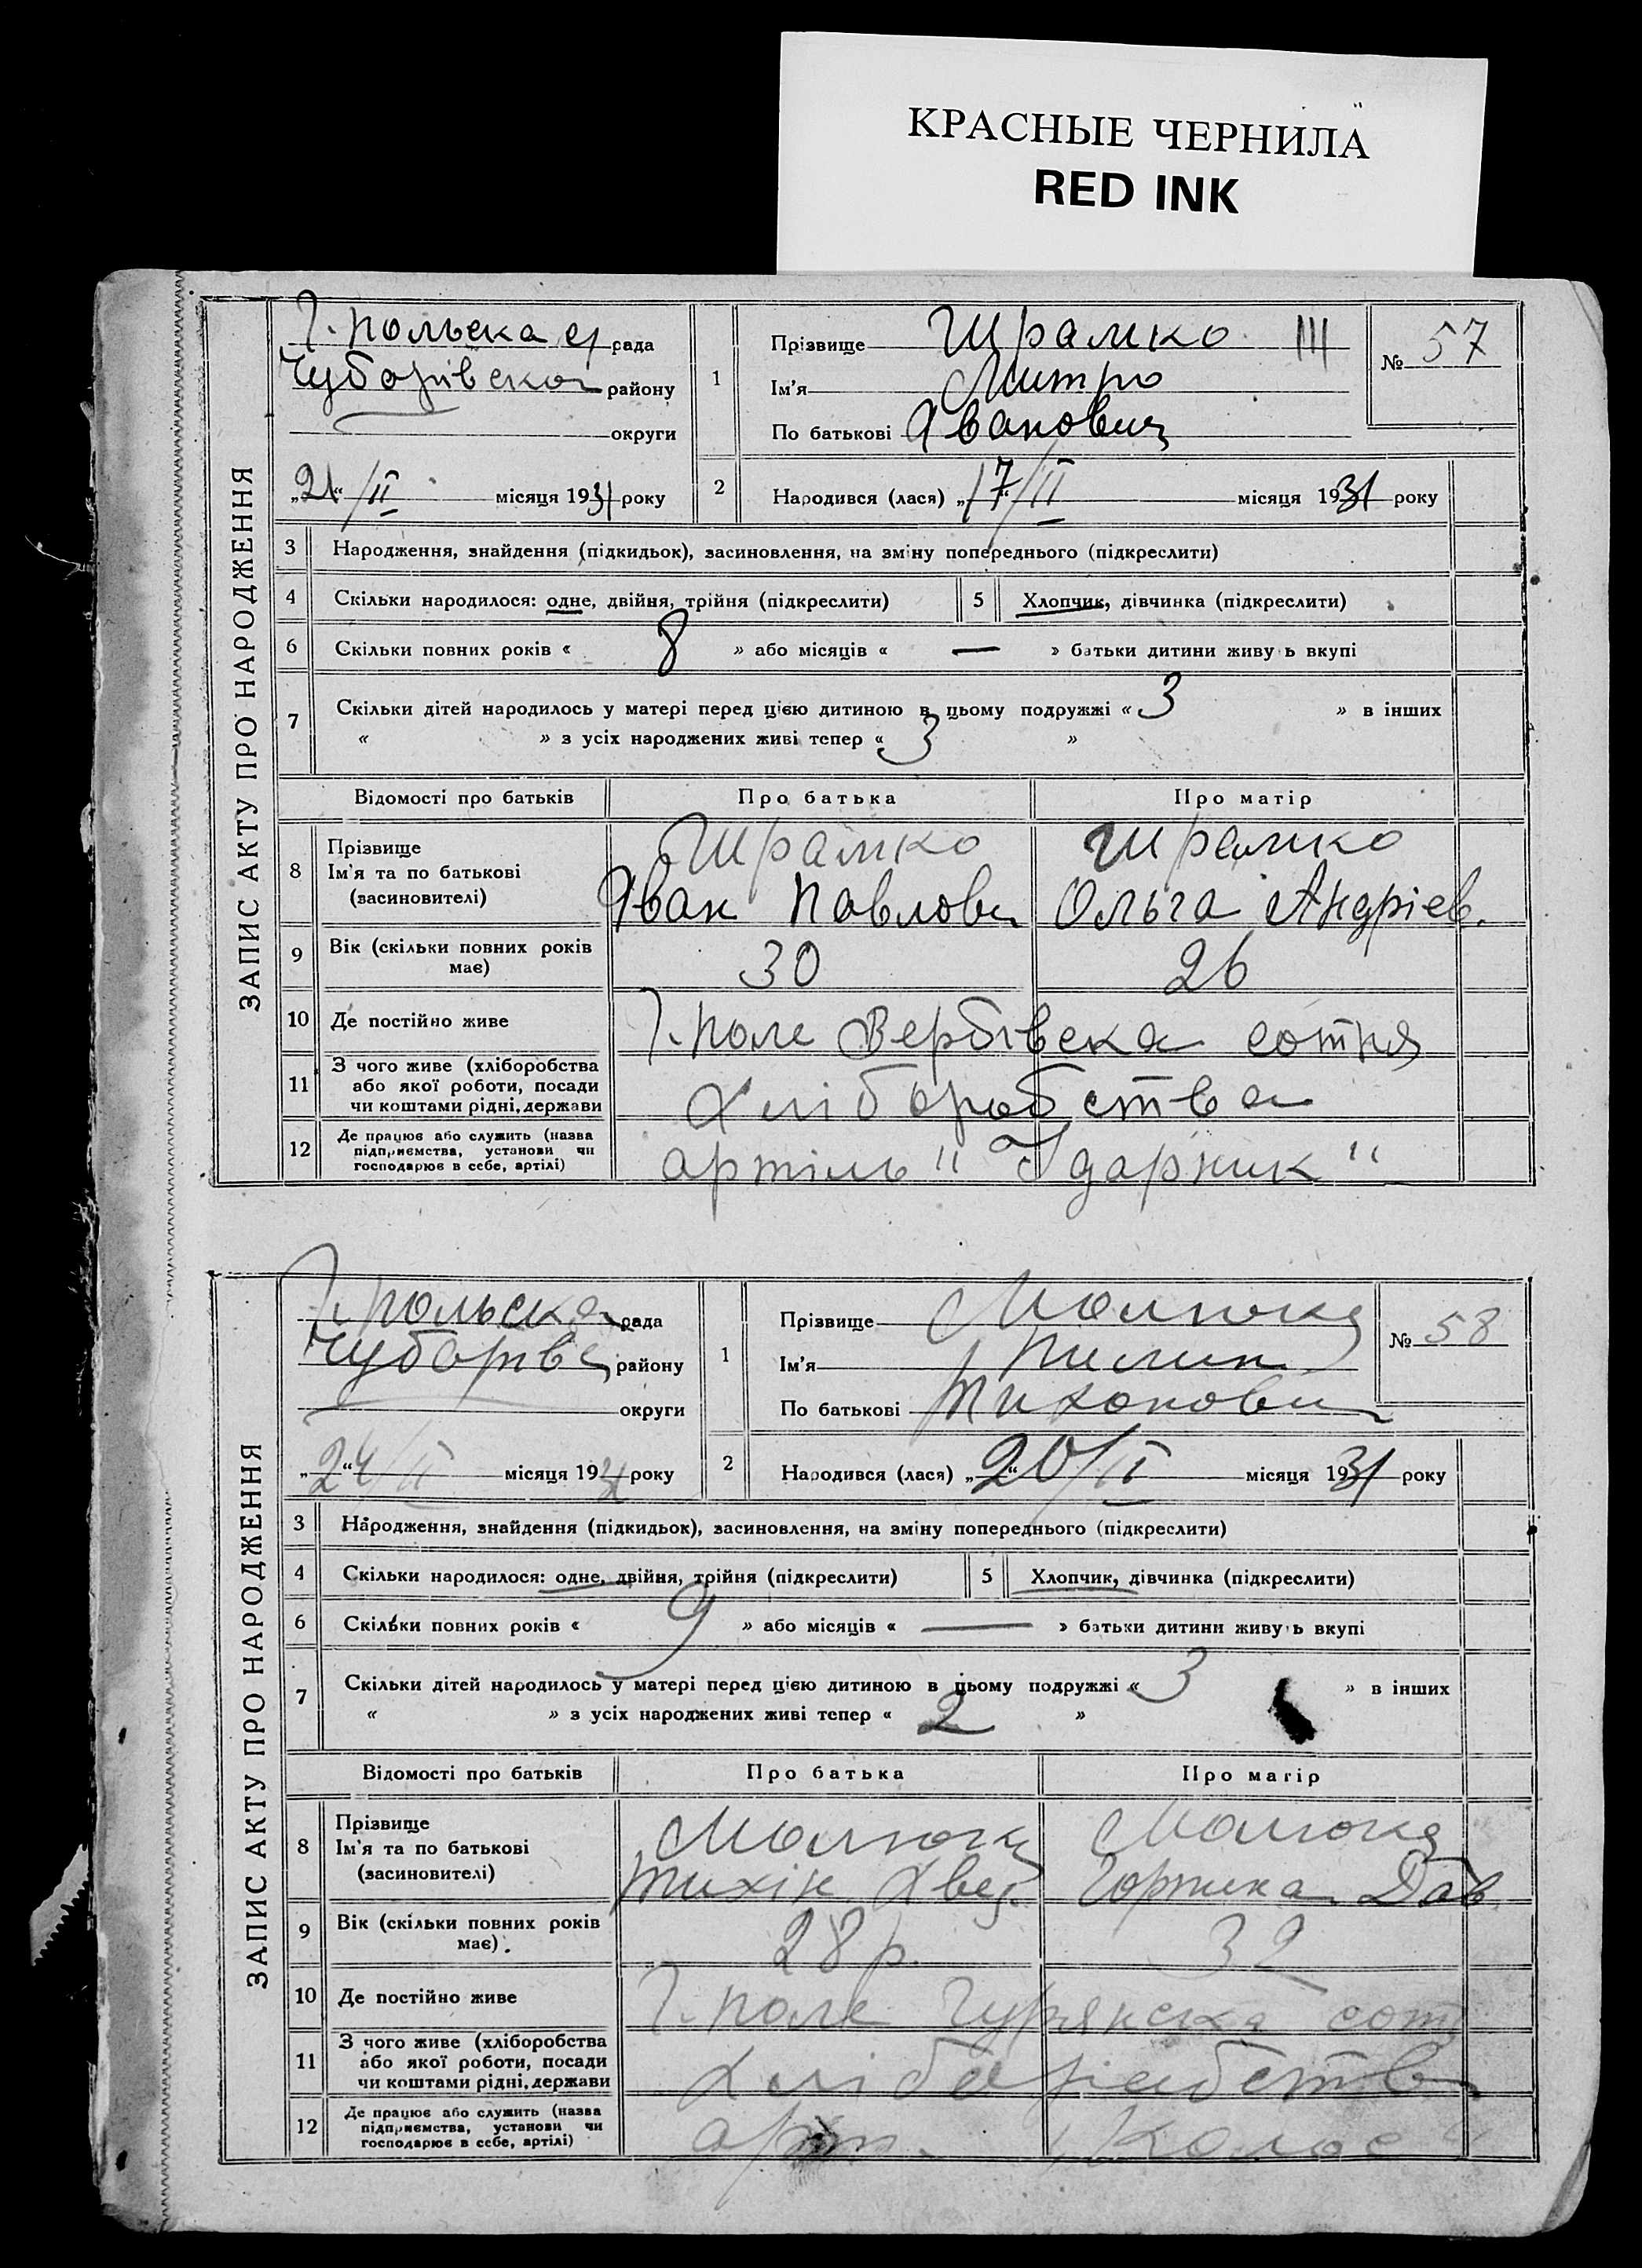 КРАСНЫЕ ЧЕРНИЛА
RED INK
Г. польска с/рада
Чубарівського району
округи
„21“/II місяця 1931 року
1
Прізвище Шрамко III
Ім'я Митро
По батькові Іванович
№ 57
2 Народився (лася) „17“/II місяця 1931 року
ЗАПИС АКТУ ПРО НАРОДЖЕННЯ
3 Народження, знайдення (підкидьок), засиновлення, на зміну попереднього (підкреслити)
4 Скільки народилося: одне, двійня, трійня (підкреслити) 5 Хлопчик, дівчинка (підкреслити)
6 Скільки повних років « 8 » або місяців « — » батьки дитини живуть вкупі
7 Скільки дітей народилось у матері перед цією дитиною в цьому подружжі « 3 » в інших
« » з усіх народжених живі тепер « 3 »
Відомості про батьків Про батька Про матір
8 Прізвище
Ім'я та по батькові
(засиновителі)
Шрамко Шрамко
Іван Павлов Ольга Андріев.
9 Вік (скільки повних років має) 30 26
10 Де постійно живе Г. Поле Вербівска сотня
11 З чого живе (хліборобства або якої роботи, посади чи коштами рідні, держави Хліборобства
12 Де працює або служить (назва підприємства, установи чи господарює в себе, артілі) артіль "Ударник"
Г. польска рада
району
округи
„24“/II місяця 1931 року
1
Прізвище
Ім'я Пилип
По батькові Тихонович
№ 58
2 Народився (лася) „20“/II місяця 1931 року
ЗАПИС АКТУ ПРО НАРОДЖЕННЯ
3 Народження, знайдення (підкидьок), засиновлення, на зміну попереднього (підкреслити)
4 Скільки народилося: одне, двійня, трійня (підкреслити) 5 Хлопчик, дівчинка (підкреслити)
6 Скільки повних років « 9 » або місяців « — » батьки дитини живуть вкупі
7 Скільки дітей народилось у матері перед цією дитиною в цьому подружжі « 3 » в інших
« » з усіх народжених живі тепер « 2 »
Відомості про батьків Про батька Про матір
8 Прізвище
Ім'я та по батькові
(засиновителі)
Тихін Дав.
9 Вік (скільки повних років має) 28 р. 32
10 Де постійно живе Г. Поле сот
11 З чого живе (хліборобства або якої роботи, посади чи коштами рідні, держави Хліборобств
12 Де працює або служить (назва підприємства, установи чи господарює в себе, артілі) арт. "Колос"